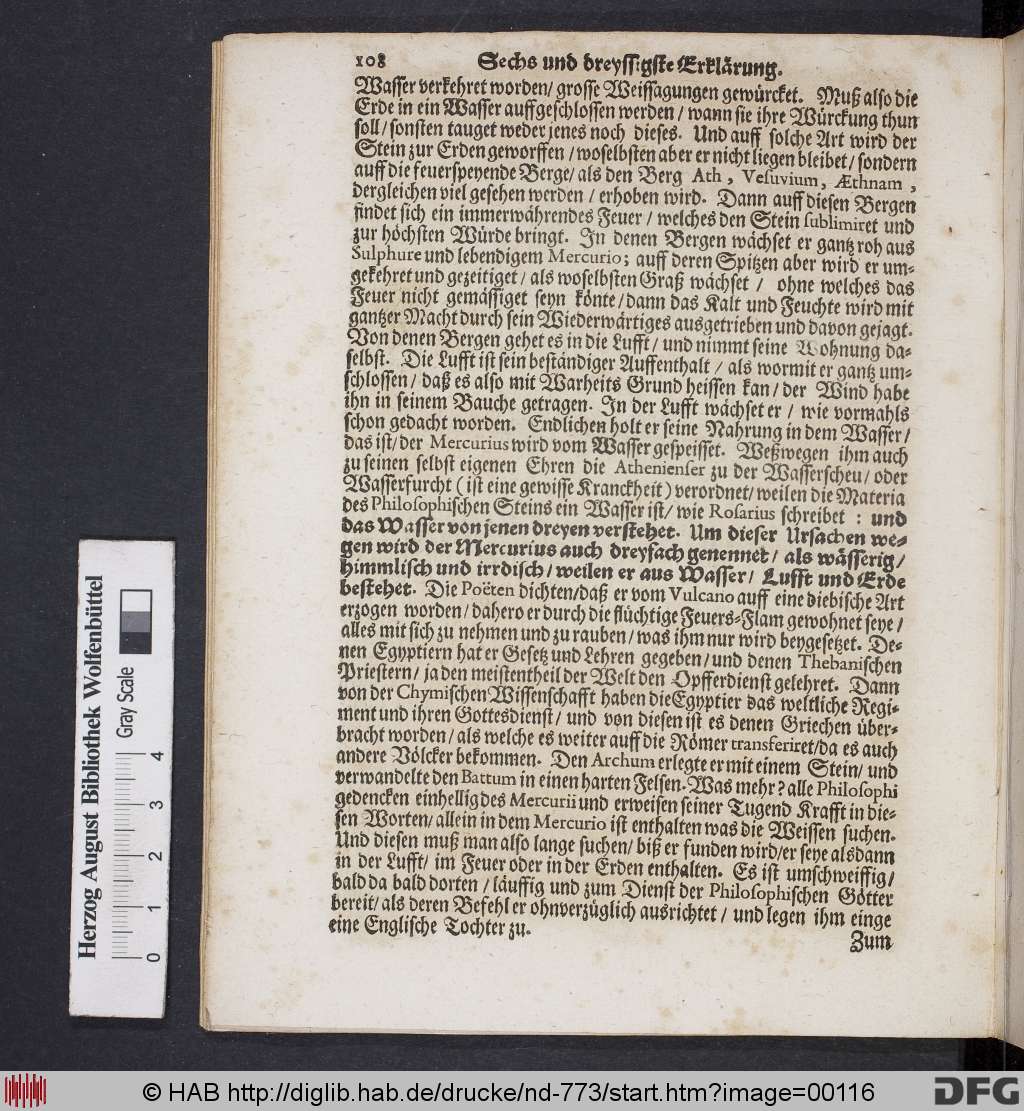 108 Sechs und dreyssigste Erklärung.
Wasser verkehret worden/ grosse Weissagungen gewürcket. Muß also die
Erde in ein Wasser auffgeschlossen werden / wann sie ihre Würckung thun
soll/ sonsten tauget weder jenes noch dieses. Und auff solche Art wird der
Stein zur Erden geworffen / woselbsten aber er nicht liegen bleibet/ sondern
auff die feuerspeyende Berge/ als den Berg Ath, Vesuvium, Æthnam,
dergleichen viel gesehen werden / erhoben wird. Dann auff diesen Bergen
findet sich ein immerwährendes Feuer / welches den Stein sublimiret und
zur höchsten Würde bringt. In denen Bergen wächset er gantz roh aus
Sulphure und lebendigem Mercurio; auff deren Spitzen aber wird er um-
gekehret und gezeitiget / als woselbsten Graß wächset / ohne welches das
Feuer nicht gemässiget seyn könte/ dann das Kalt und Feuchte wird mit
gantzer Macht durch sein Wiederwärtiges ausgetrieben und davon gejagt.
Von denen Bergen gehet es in die Lufft/ und nimmt seine Wohnung da-
selbst. Die Lufft ist sein beständiger Auffenthalt / als wormit er gantz um-
schlossen/ daß es also mit Warheits Grund heissen kan/ der Wind habe
ihn in seinem Bauche getragen. In der Lufft wächset er / wie vormahls
schon gedacht worden. Endlichen holt er seine Nahrung in dem Wasser/
das ist/ der Mercurius wird vom Wasser gespeisset. Weßwegen ihm auch
zu seinen selbst eigenen Ehren die Athenienser zu der Wasserscheu/ oder
Wasserfurcht (ist eine gewisse Kranckheit) verordnet/ weilen die Materia
des Philosophischen Steins ein Wasser ist/ wie Rosarius schreibet: und
das Wasser von jenen dreyen verstehet. Um dieser Ursachen we-
gen wird der Mercurius auch dreyfach genennet/ als wässerig/
himmlisch und irrdisch/ weilen er aus Wasser/ Lufft und Erde
bestehet. Die Poëten dichten/ daß er vom Vulcano auff eine diebische Art
erzogen worden/ dahero er durch die flüchtige Feuers-Flam gewohnet seye/
alles mit sich zu nehmen und zu rauben/ was ihm nur wird beygesetzet. De-
nen Egyptiern hat er Gesetz und Lehren gegeben/ und denen Thebanischen
Priestern/ ja den meistentheil der Welt den Opfferdienst gelehret. Dann
von der Chymischen Wissenschafft haben die Egyptier das weltliche Regi-
ment und ihren Gottesdienst/ und von diesen ist es denen Griechen über-
bracht worden/ als welche es weiter auff die Römer transferiret/ da es auch
andere Völcker bekommen. Den Archum erlegte er mit einem Stein/ und
verwandelte den Battum in einen harten Felsen. Was mehr? alle Philosophi
gedencken einhellig des Mercurii und erweisen seiner Tugend Krafft in die-
sen Worten/ allein in dem Mercurio ist enthalten was die Weissen suchen.
Und diesen muß man also lange suchen/ biß er funden wird/ er seye alsdann
in der Lufft/ im Feuer oder in der Erden enthalten. Es ist umschweiffig/
bald da bald dorten / läuffig und zum Dienst der Philosophischen Götter
bereit/ als deren Befehl er ohnverzüglich ausrichtet / und legen ihm einge
eine Englische Tochter zu.
Zum
Herzog August Bibliothek Wolfenbüttel
Gray Scale
0 1 2 3 4
© HAB http://diglib.hab.de/drucke/nd-773/start.htm?image=00116
DFG